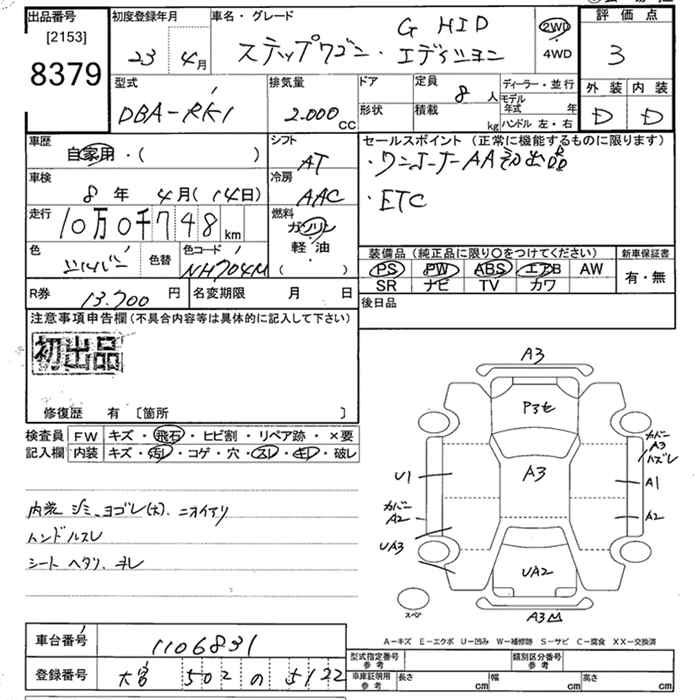 出品番号
[2153]
8379
初度登録年月
23 4月
車名・グレード
G HID
ステップワゴン・エディション
2WD
4WD
評価点
3
外装 内装
D D
型式
DBA-RK1
排気量
2.000 cc
ドア
形状
定員
8人
積載
kg
ディーラー・並行
モデル年式 年
ハンドル 左・右
車歴
自家用・( )
シフト
AT
セールスポイント(正常に機能するものに限ります)
・ワンオーナーAA初出品
・ETC
車検
8年 4月(14日)
冷房
AAC
走行
10万0千748km
燃料
ガソリン
軽・油
( )
色
シルバー
色替
色コード
NH704M
装備品(純正品に限り○をつけてください)
PS PW ABS エアB AW
SR ナビ TV カワ
新車保証書
有・無
R券
13.700円
名変期限 月 日
後日品
注意事項申告欄(不具合内容等は具体的に記入して下さい)
初出品
修復歴 有 〔箇所 〕
検査員記入欄
FW キズ・飛石・ヒビ割・リペア跡・×要
内装 キズ・汚レ・コゲ・穴・スレ・キレ・破レ
内装 シミ、ヨゴレ(大)、ニオイアリ
ハンドルスレ
シート ヘタリ、キレ
A3
P3セ
A3
U1
カバー
A2
UA3
カバー
A3
ハズレ
A1
A2
UA2
スペア
A3
A-キズ E-エクボ U-凹み W-補修跡 S-サビ C-腐食 XX-交換済
車台番号
1106831
登録番号
大宮 502 の 5122
型式指定番号
参考
類別区分番号
参考
車庫証明用
参考
長さ cm
幅 cm
高さ cm